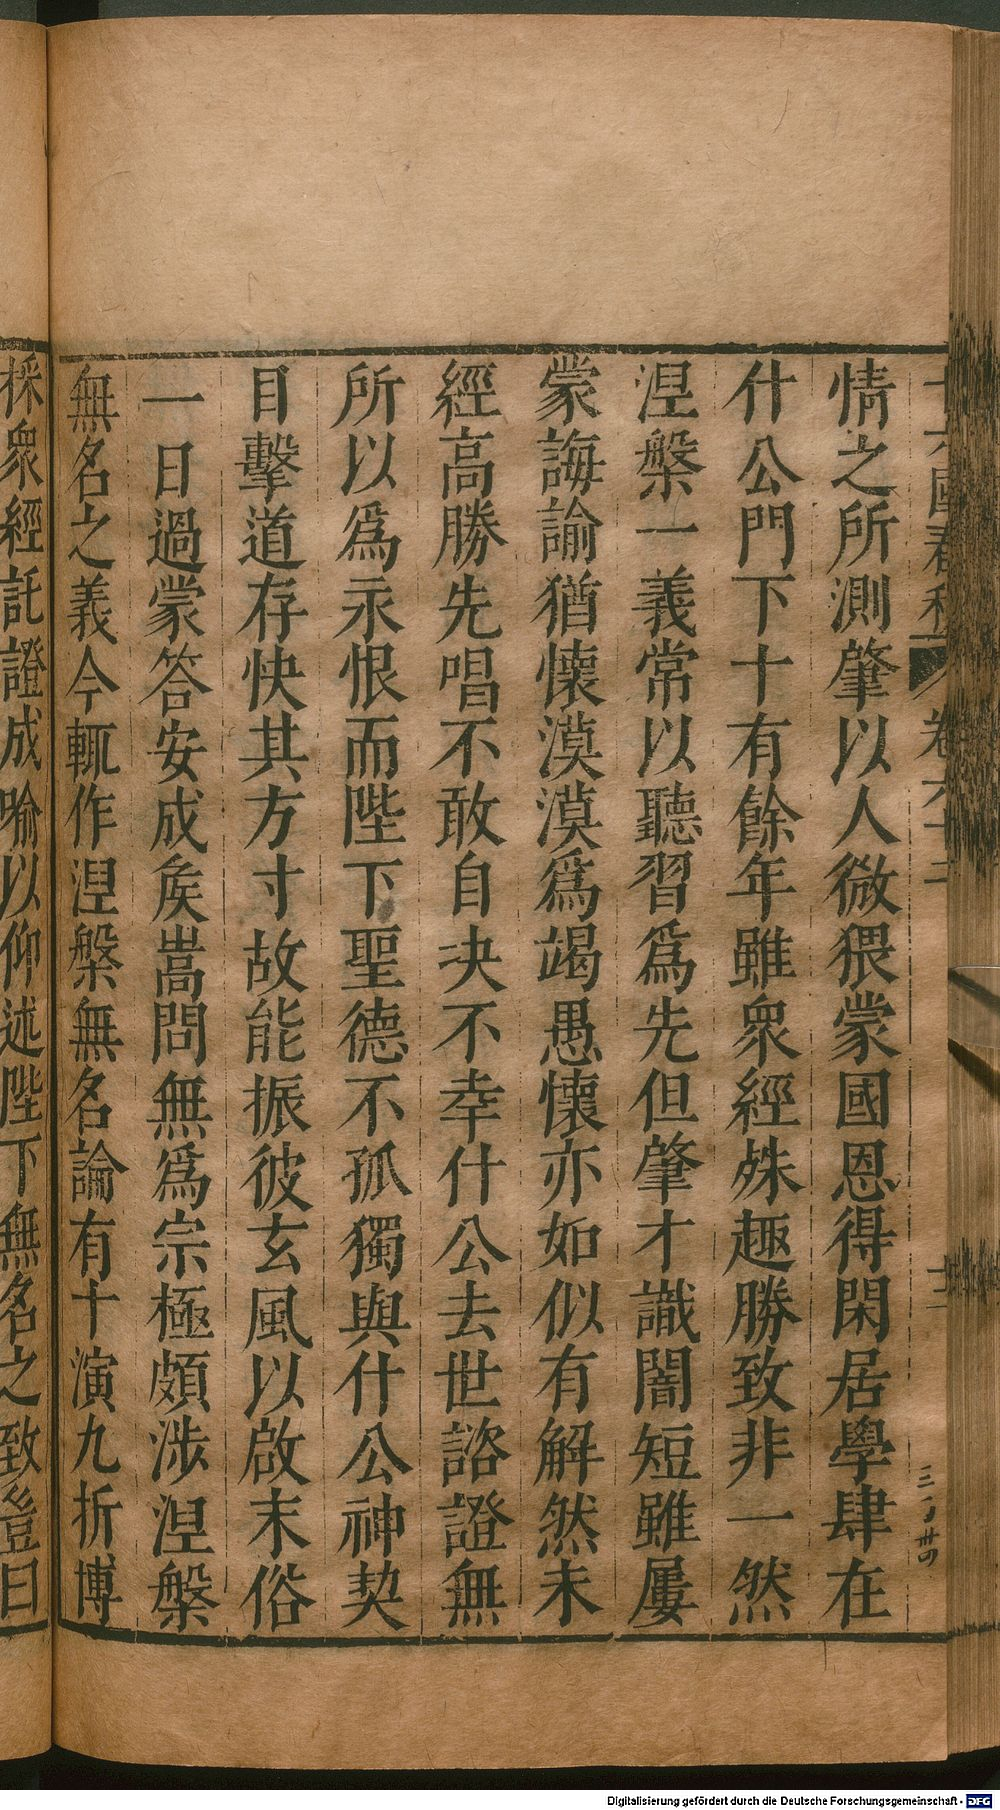 十六國春秋 卷六十二 十一
情之所測肇以人微猥蒙國恩得閑居學肆在
什公門下十有餘年雖衆經殊趣勝致非一然
涅槃一義常以聽習爲先但肇才識闇短雖屢
蒙誨諭猶懷漠漠爲竭愚懷亦如似有解然未
經高勝先唱不敢自决不幸什公去世諮證無
所以爲永恨而陛下聖德不孤獨與什公神契
目擊道存快其方寸故能振彼玄風以啟末俗
一日過蒙答安成矦嵩問無爲宗極頗涉涅槃
無名之義今輒作涅槃無名論有十演九折博
採衆經託證成喻以仰述陛下無名之致豈曰
Digitalisierung gefördert durch die Deutsche Forschungsgemeinschaft - DFG